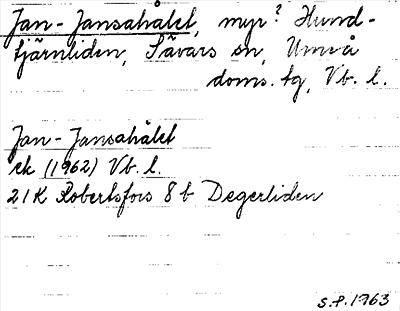 Jan-Jansahålet, myr? Hund-
tjärnliden, Sävars sn, Umeå
doms. tg, Vb. l.
Jan-Jansahålet
ek (1962) Vb. l.
21K Robertsfors 8 b Degerliden
S.P. 1963